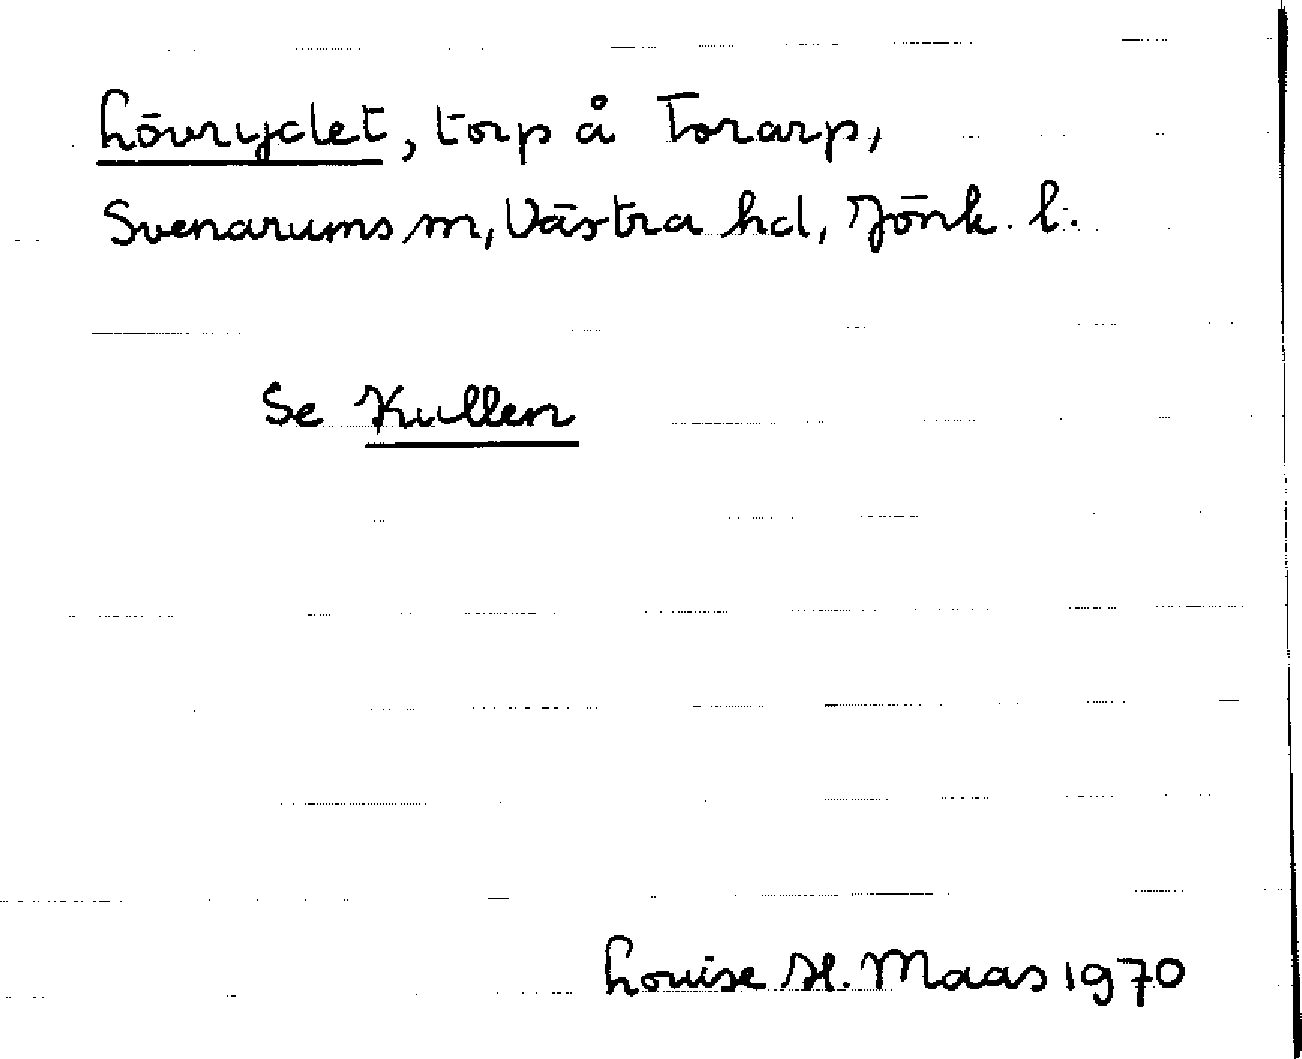 Lövrydet, torp å Torarp,
Svenarums sn, Västra hd, Jönk. l.
Se Kullen
Louise H. Maas 1970